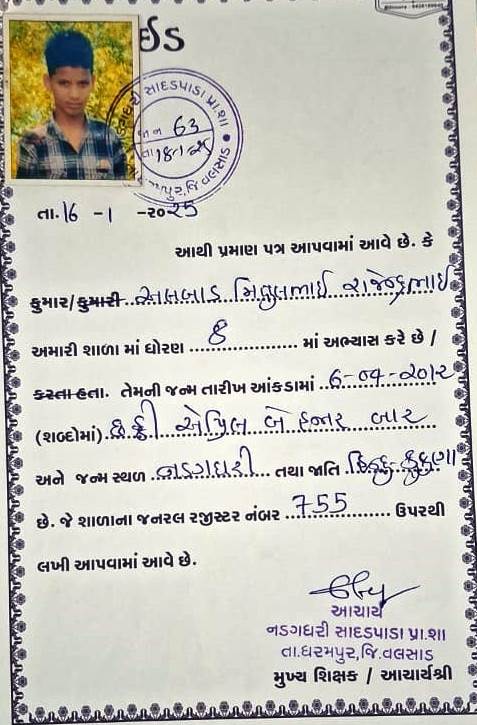 ઈડ
નડગધરી સાદડપાડા પ્રા.શા
જા નં 63
તા 18-1-25
તા.ધરમપુર,જિ.વલસાડ
તા.16 -1 -2025
આથી પ્રમાણ પત્ર આપવામાં આવે છે. કે
કુમાર/કુમારી અલબાડ મિતુલભાઈ રાજેન્દ્રભાઈ
અમારી શાળા માં ધોરણ 8 માં અભ્યાસ કરે છે /
કરતા હતા. તેમની જન્મ તારીખ આંકડામાં 6-04-2012
(શબ્દોમાં) છઠ્ઠી એપ્રિલ બે હજાર બાર
અને જન્મ સ્થળ નડગધરી તથા જાતિ હિન્દુ કુકણા
છે. જે શાળાના જનરલ રજીસ્ટર નંબર 755 ઉપરથી
લખી આપવામાં આવે છે.
આચાર્ય
નડગધરી સાદડપાડા પ્રા.શા
તા.ધરમપુર,જિ.વલસાડ
મુખ્ય શિક્ષક / આચાર્યશ્રી